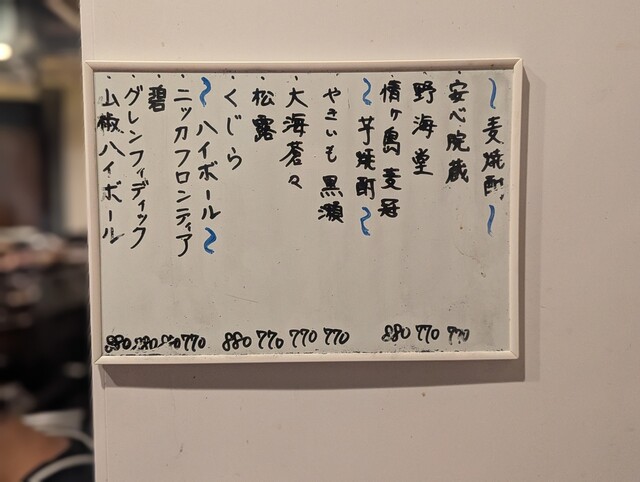 〜麦焼酎〜
・安心院蔵 770
・野海棠 770
・情ヶ島麦冠 880
〜芋焼酎〜
・やきいも黒瀬 770
・大海蒼々 770
・松露 770
・くじら 880
〜ハイボール〜
・ニッカフロンティア 770
・碧
・グレンフィディック
・山椒ハイボール 880